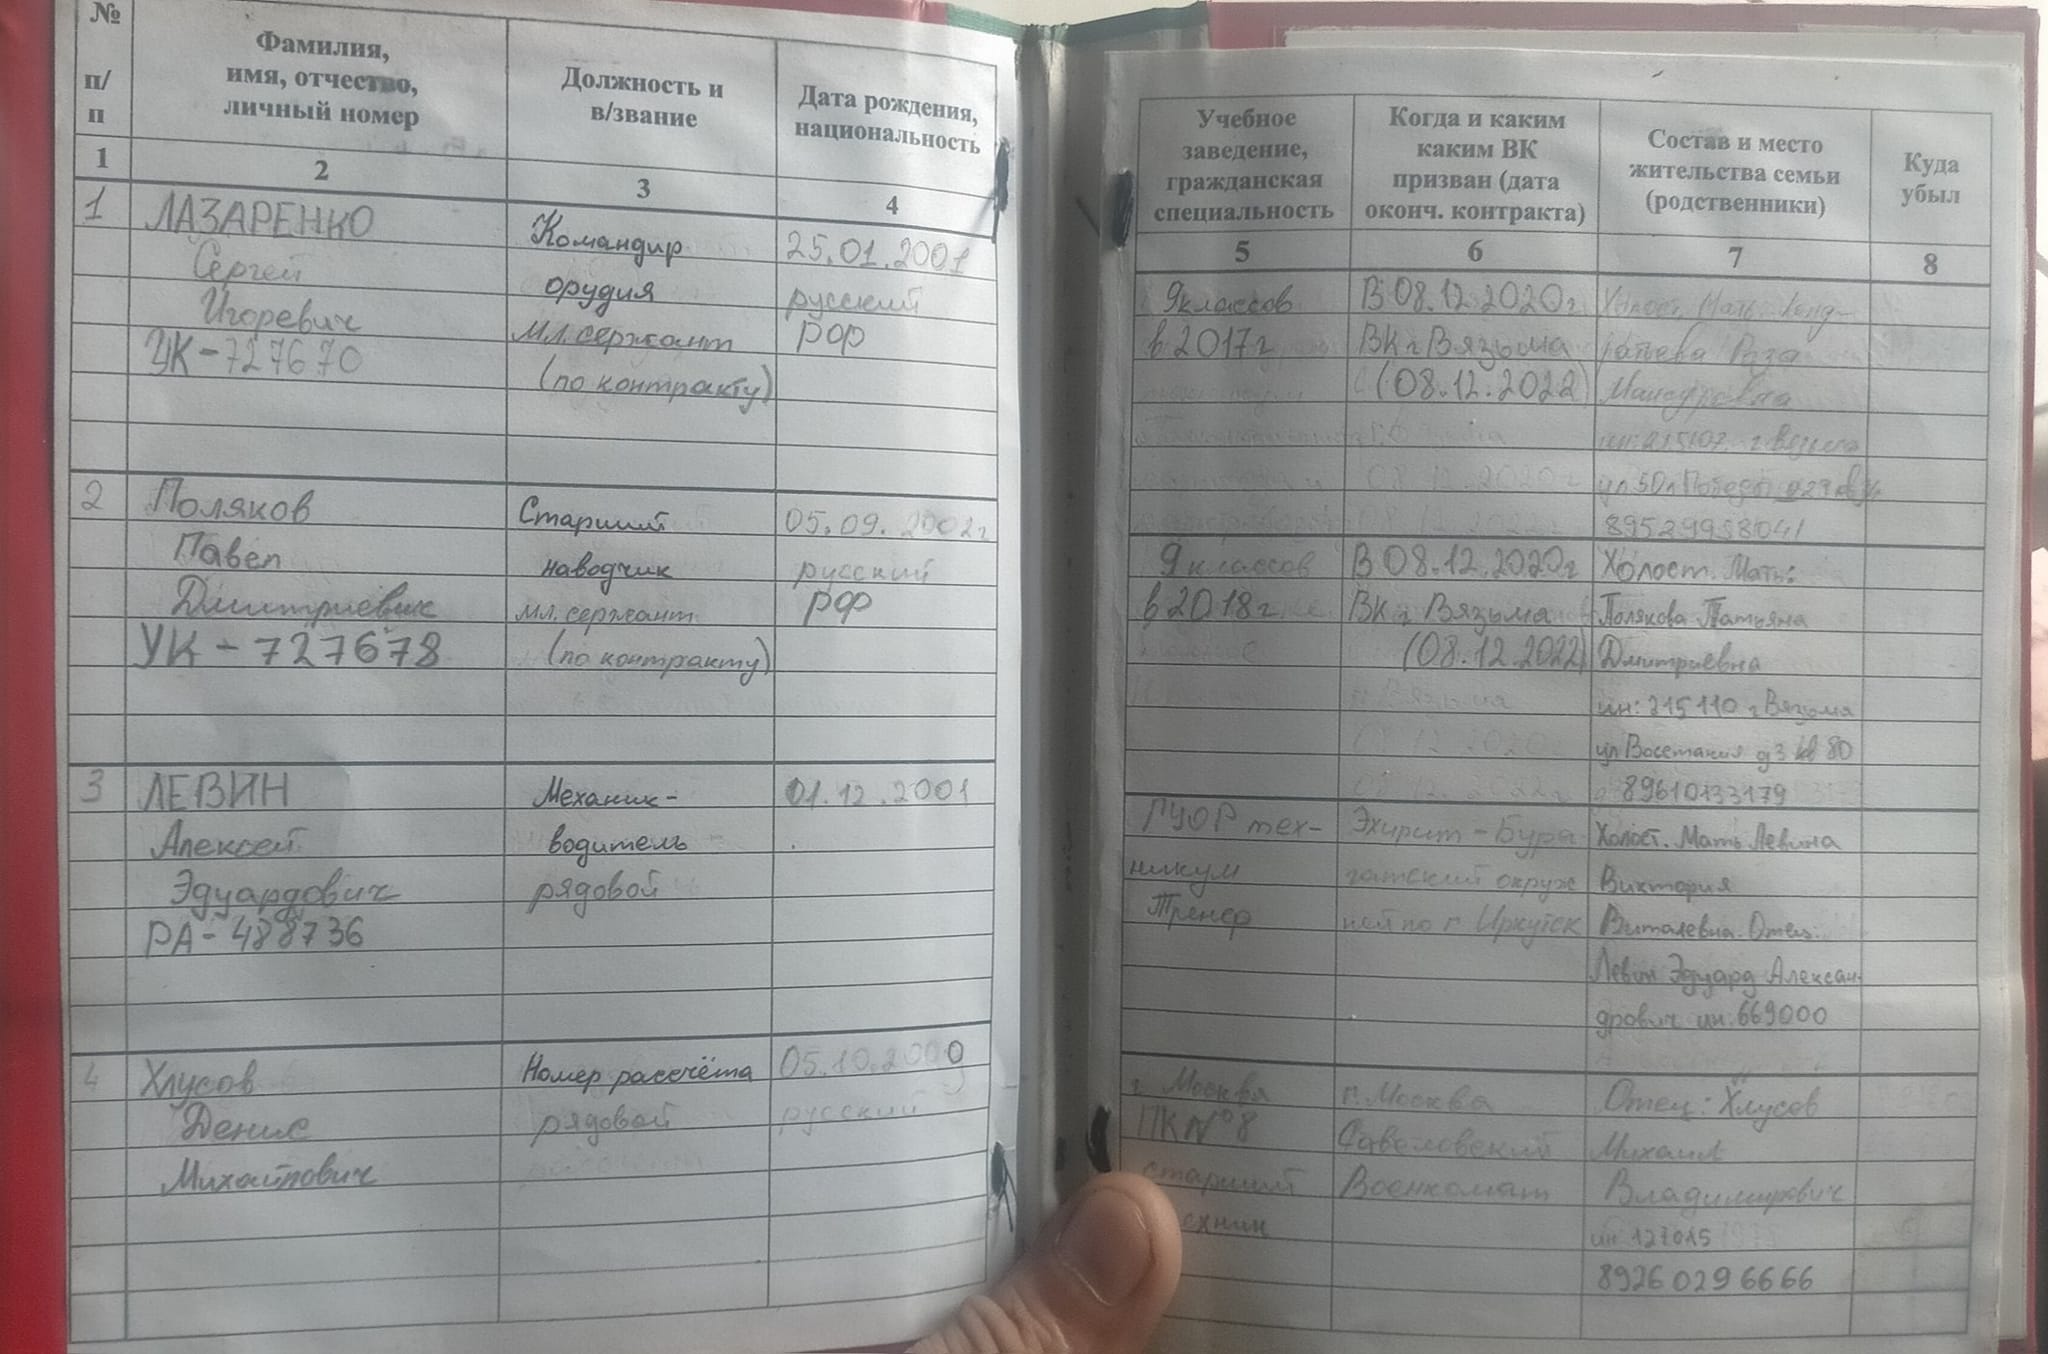 № п/п
Фамилия,
имя, отчество,
личный номер
Должность и
в/звание
Дата рождения,
национальность
1
2
3
4
1
ЛАЗАРЕНКО
Сергей
Игоревич
УК-727670
Командир
орудия
мл. сержант
(по контракту)
25.01.2001
русский
РФ
2
Поляков
Павел
Дмитриевич
УК-727678
Старший
наводчик
мл. сержант
(по контракту)
05.09.2002г
русский
РФ
3
ЛЕВИН
Алексей
Эдуардович
РА-488736
Механик-
водитель
рядовой
01.12.2001
4
Хлусов
Денис
Михайлович
Номер рассчёта
рядовой
05.10.2000
русский
Учебное
заведение,
гражданская
специальность
Когда и каким
каким ВК
призван (дата
оконч. контракта)
Состав и место
жительства семьи
(родственники)
Куда
убыл
5
6
7
8
9 классов
в 2017г
В 08.12.2020г
ВК г Вязьма
(08.12.2022)
Холост. Мать
Роза
ин: 215107. г Вязьма
ул 50л Победы
89529958041
9 классов
в 2018г
В 08.12.2020г
ВК г Вязьма
(08.12.2022)
Холост. Мать:
Полякова Татьяна
Дмитриевна
ин: 215110 г Вязьма
ул Восстания д3 кв 80
89610133179
ГУОР тех-
никум
Тренер
Эхирит-Бура
гатский округ
г Иркутск
Холост. Мать Левина
Виктория
Виталевна. Отец:
Левин Эдуард Алексан-
дрович ин: 669000
г Москва
ПК №8
старший
г. Москва
Савеловский
Военкомат
Отец: Хлусов
Михаил
Владимирович
ин 127015
89260296666